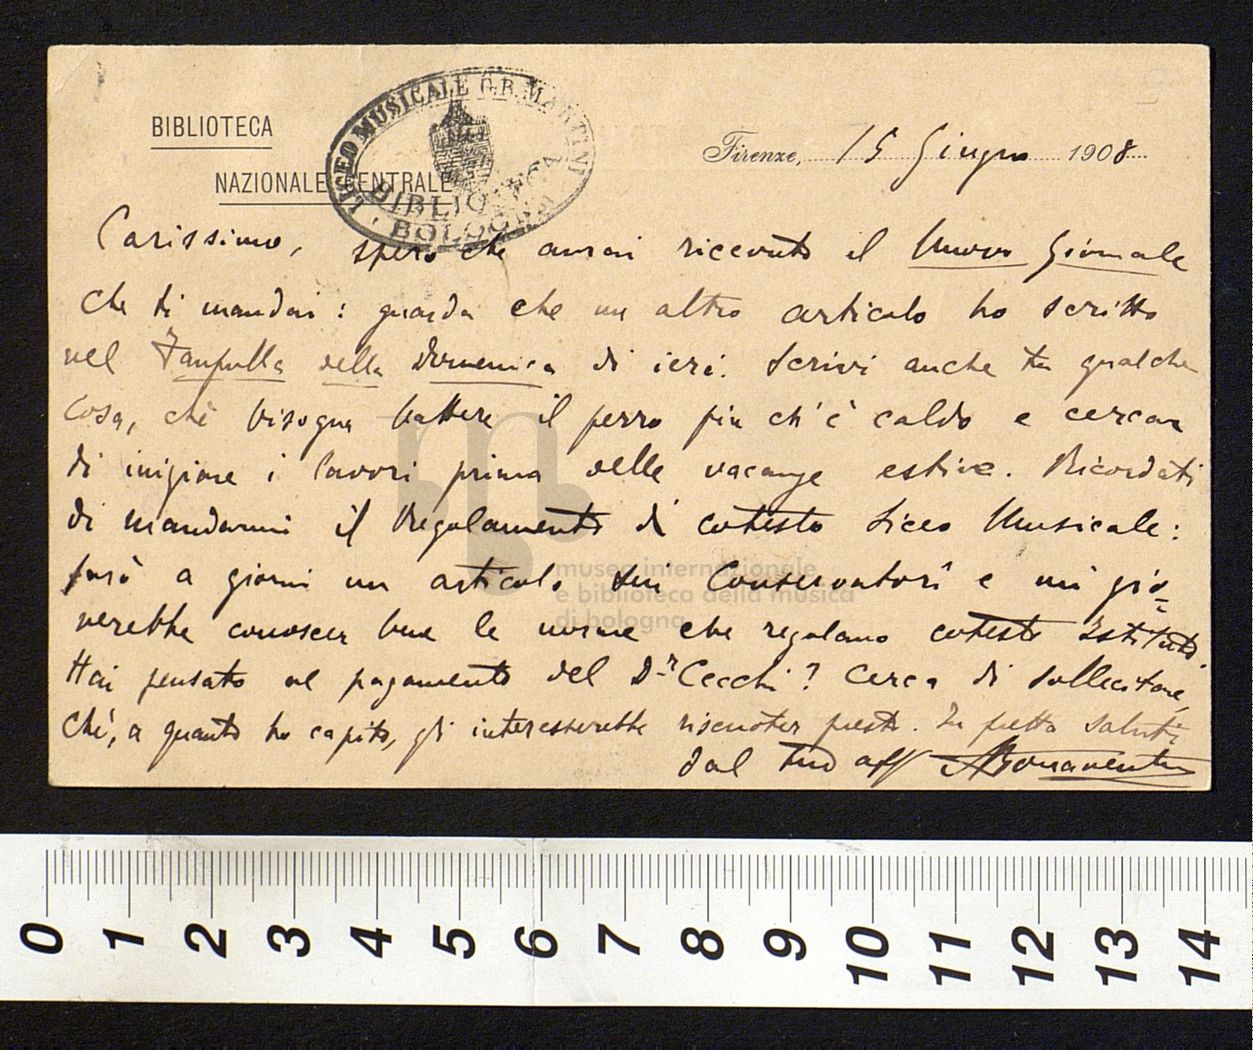 BIBLIOTECA
NAZIONALE CENTRALE
LICEO MUSICALE G.B. MARTINI
BIBLIOTECA
BOLOGNA
Firenze, 15 Giugno 1908
Carissimo, spero che avrai ricevuto il Nuovo Giornale
che ti mandai: guarda che un altro articolo ho scritto
nel Fanfulla della Domenica di ieri. Scrivi anche tu qualche
cosa, chè bisogna battere il ferro fin ch'è caldo e cercar
di iniziare i lavori prima delle vacanze estive. Ricordati
di mandarmi il Regolamento di cotesto Liceo Musicale:
farò a giorni un articolo sui Conservatorî e mi gio=
verebbe conoscer bene le norme che regolano cotesto Istituto.
Hai pensato al pagamento del Dr Cecchi? Cerca di sollecitare,
chè, a quanto ho capito, gli interesserebbe riscuoter presto. In fretta saluti
dal tuo aff ABonaventura
museo internazionale
e biblioteca della musica
di bologna
0 1 2 3 4 5 6 7 8 9 10 11 12 13 14